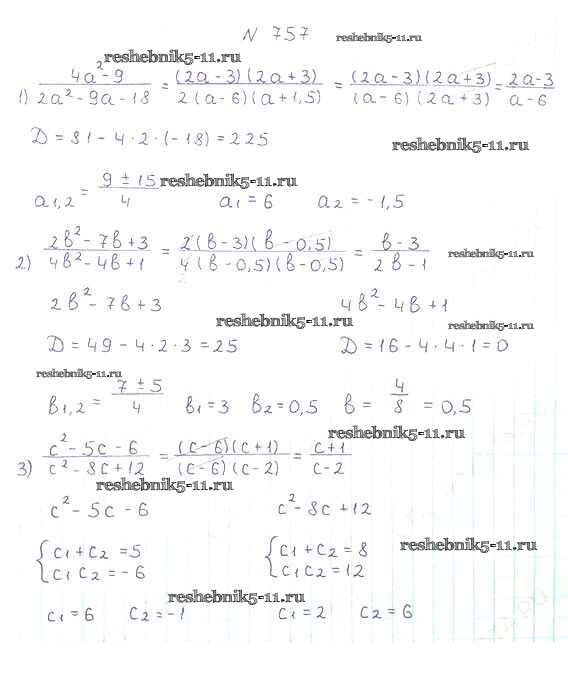 N 757 reshebnik5-11.ru
reshebnik5-11.ru
1) (4a² - 9)/(2a² - 9a - 18) = ((2a - 3)(2a + 3))/(2(a - 6)(a + 1,5)) = ((2a - 3)(2a + 3))/((a - 6)(2a + 3)) = (2a - 3)/(a - 6)
D = 81 - 4 · 2 · (-18) = 225 reshebnik5-11.ru
a₁,₂ = (9 ± 15)/4 reshebnik5-11.ru a₁ = 6 a₂ = -1,5
2) (2в² - 7в + 3)/(4в² - 4в + 1) = (2(в - 3)(в - 0,5))/(4(в - 0,5)(в - 0,5)) = (в - 3)/(2в - 1) reshebnik5-11.ru
2в² - 7в + 3 4в² - 4в + 1
reshebnik5-11.ru reshebnik5-11.ru
D = 49 - 4 · 2 · 3 = 25 D = 16 - 4 · 4 · 1 = 0
reshebnik5-11.ru
в₁,₂ = (7 ± 5)/4 в₁ = 3 в₂ = 0,5 в = 4/8 = 0,5
reshebnik5-11.ru
3) (c² - 5c - 6)/(c² - 8c + 12) = ((c - 6)(c + 1))/((c - 6)(c - 2)) = (c + 1)/(c - 2)
reshebnik5-11.ru
c² - 5c - 6 c² - 8c + 12
{ c₁ + c₂ = 5 { c₁ + c₂ = 8 reshebnik5-11.ru
c₁ c₂ = -6 c₁ c₂ = 12
reshebnik5-11.ru
c₁ = 6 c₂ = -1 c₁ = 2 c₂ = 6